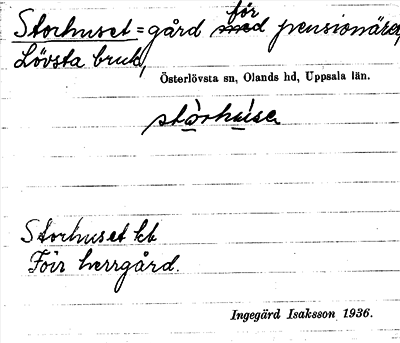 Storhuset = gård för med pensionärer,
Lövsta bruk,
Österlövsta sn, Olands hd, Uppsala län.
stòrhuisə
Storhuset kb
För herrgård.
Ingegärd Isaksson 1936.